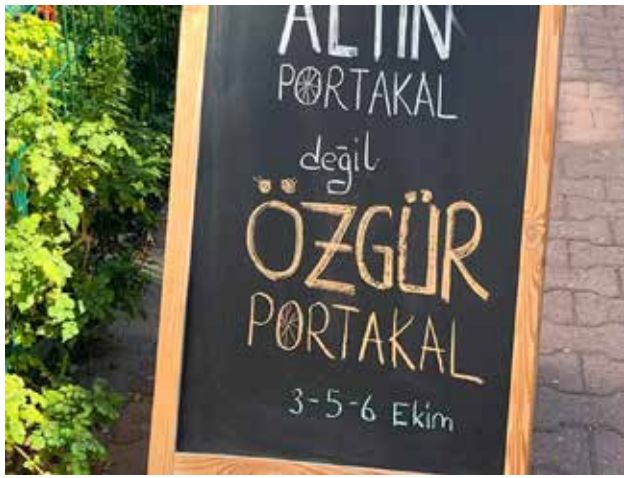 ALTIN
PORTAKAL
değil
ÖZGÜR
PORTAKAL
3-5-6 Ekim